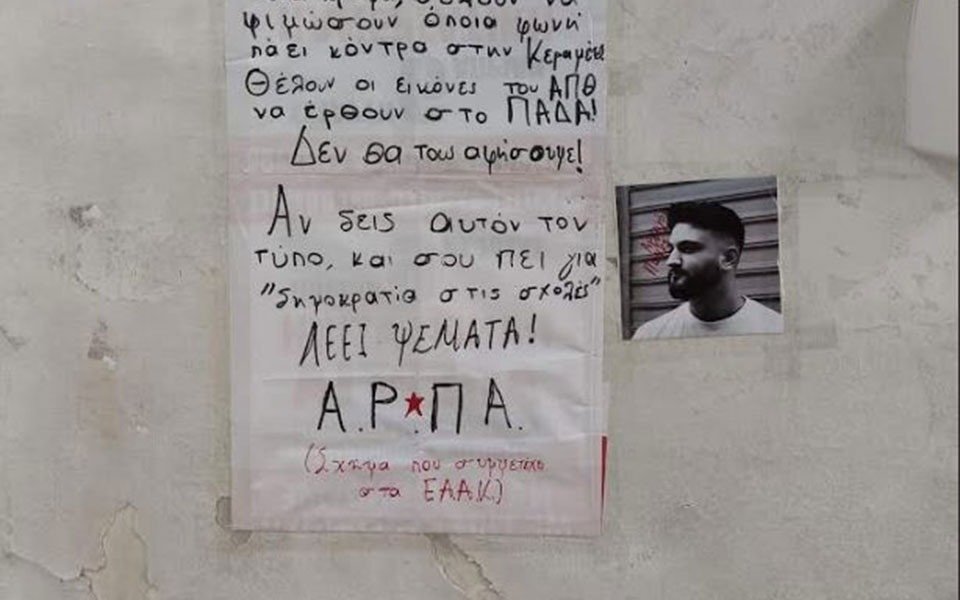 να
φιμώσουν όποια φωνή
πάει κόντρα στην Κεραμέως
Θέλουν οι εικόνες του ΑΠΘ
να έρθουν στο ΠΑΔΑ!
Δεν θα τους αφήσουμε!
Αν δεις αυτόν τον
τύπο, και σου πει για
"δημοκρατία στις σχολές"
ΛΕΕΙ ΨΕΜΑΤΑ!
Α.Ρ★ΠΑ.
(Σχήμα που συμμετέχει
στα ΕΑΑΚ)